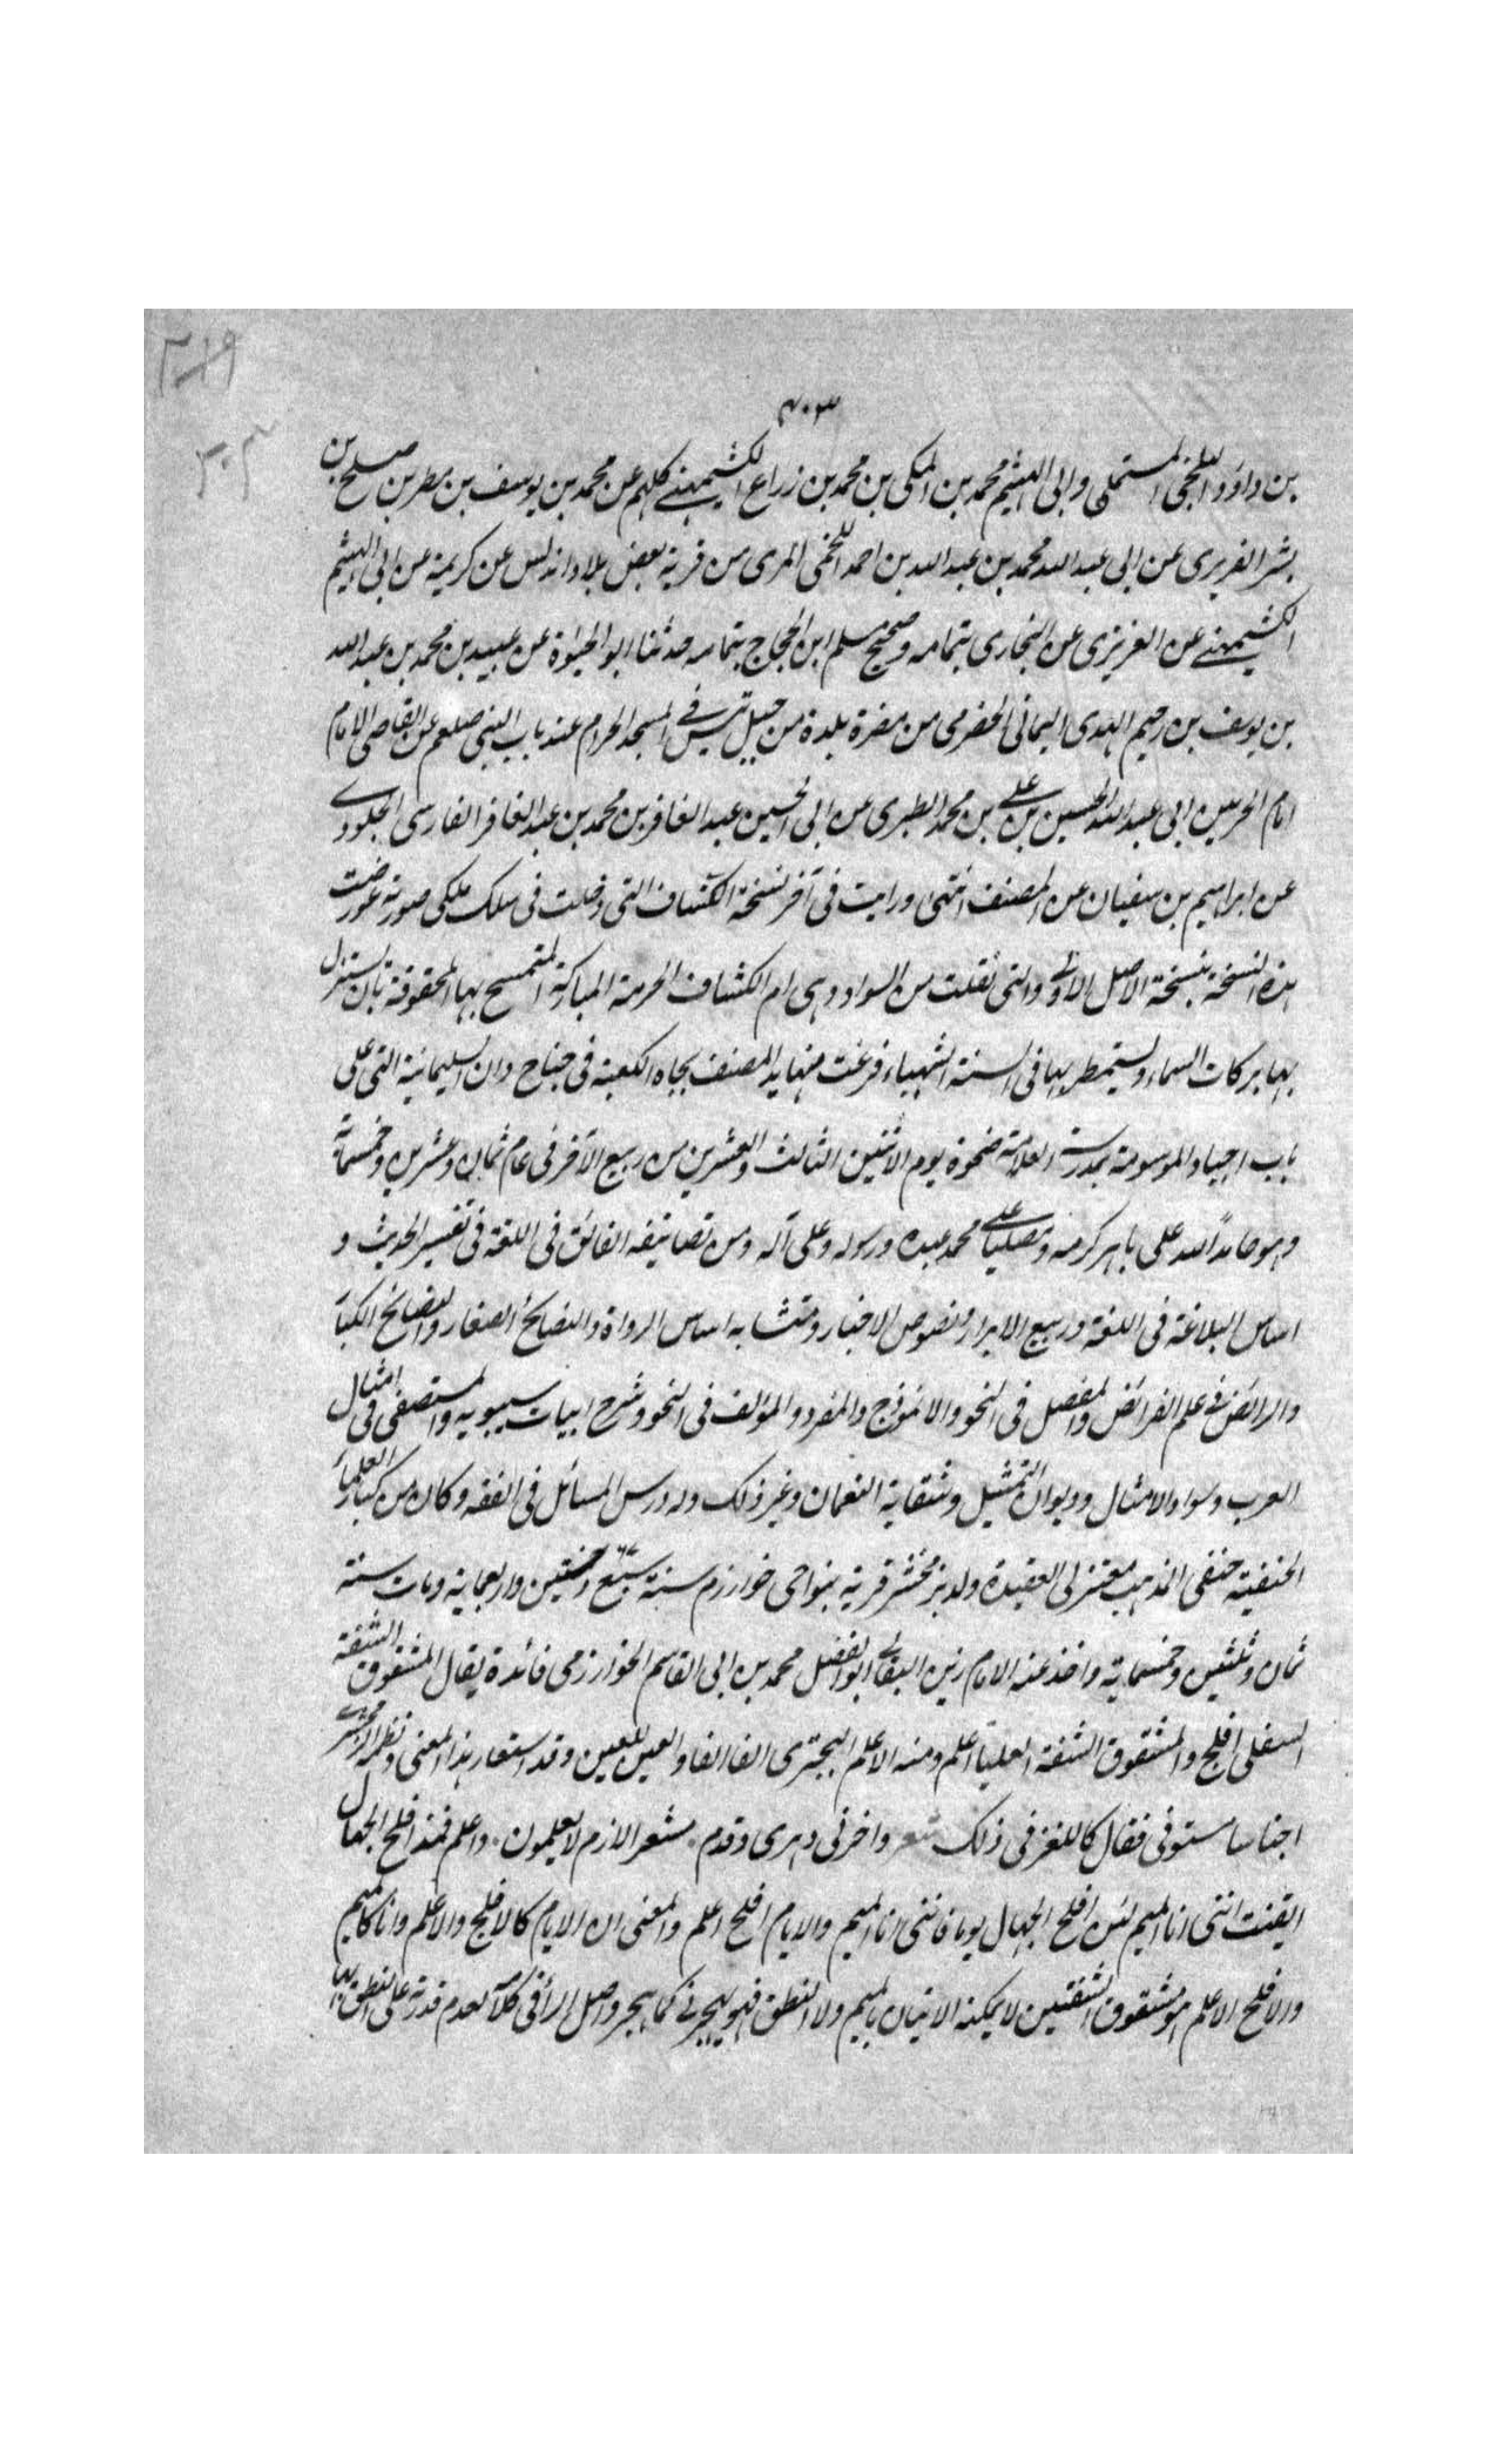 ٣١٩
٣٠٣
٣٠٣
بن داود البلخى المستملى وابى الهيثم محمد بن المكى بن محمد بن زراع الكشميهنے كلهم عن محمد بن يوسف بن مطر بن صلح بن
بشر الفربرى عن ابى عبد الله محمد بن عبد الله بن احمد اللخمى المرى من قرية بعض بلاد اندلس عن كريمة عن ابى الهيثم
الكشميهنے عن العزيزى عن البخارى بتمامه وصحيح مسلم ابن الحجاج بتمامه حدثنا ابو الحيوة عن عبيد بن محمد بن عبد الله
بن يوسف بن رحيم الهدى اليمانى الحضرمى من مضرة بلدة من جبل تيس فے المسجد الحرام عند باب النبى صلعم عن القاضى الامام
امام الحرمين ابى عبد الله الحسين بن على بن محمد الطبرى عن ابى الحسين عبد الغافر بن محمد بن عبد الغافر الفارسى الجلودے
عن ابراهيم بن سفيان عن المصنف انتهى ورايت فى آخر نسخة الكشاف التى دخلت فى سلك ملكى صورته عورضت
هذه النسخة بنسخة الاصل الاولى والتى نقلت من السواد وهى ام الكشاف الحرمية المباركة المتمسح بها المحقوقة بان يستنزل
بها بركات السماء ويستمطر بها فى السنة الشهباء فرغت منها يد المصنف تجاه الكعبة فى جناح دان السليمانية التى على
باب اجياد الموسومة بمدرسة العلامة ضحوة يوم الاثنين الثالث والعشرين من ربيع الآخر فى عام ثمان وعشرين وخمسمائة
وهو حامداً لله على باهر كرمه ومصلياً على محمد عبده ورسوله وعلى آله ومن تصانيفه الفائق فى اللغة فى تفسير الحديث و
اساس البلاغة فى اللغة وربيع الابرار ونصوص الاخبار ومتشابه اساس الرواة والنصائح الصغار والنصائح الكبار
والرائض فى علم الفرائض والمفصل فى النحو والانموذج والمفرد والمؤلف فى النحو وشرح ابيات سيبويه والمستصفى فى امثال
العرب وسوا والامثال وديوان التمثيل وشقاية النعمان وغير ذلك وله درس المسائل فى الفقه وكان من كبار العلماء
الحنفية حنفى المذهب معتزلى العقيدة ولد بزمخشر قرية بنواحى خوارزم سنة سبع وستين واربعماية ومات سنة
ثمان وثلثين وخمسماية واخذ عنه الامام زين البقالى ابو الفضل محمد بن ابى القاسم الخوارزمى فائدة يقال المشقوق الشفة
السفلى افلح والمشقوق الشفة العلياً اعلم ومنه الاعلم البحترى الفا الفا والعين للعين وقد استعار هذا المعنى ونظمه الزمخشرے
اجناسا مستوفى فقال كاللغز فى ذلك شعر واخرنى دهرى وقدم . مشعر الازم لا يعلمون . واعلم فمذ افلح الجهال
ايقنت انتى انا الميم لئن افلح الجهال يوما فاننى انا الميم والايام افلح اعلم والمعنى ان الايام كالافلح والاعلم وانا كالميم
والافلح الاعلم هو مشقوق الشفتين لا يمكنه الاتيان بالميم ولا النطق فهو يهجرنے كما يهجر واصل الرأ فى كلامه لعدم قدرته على النطق بها